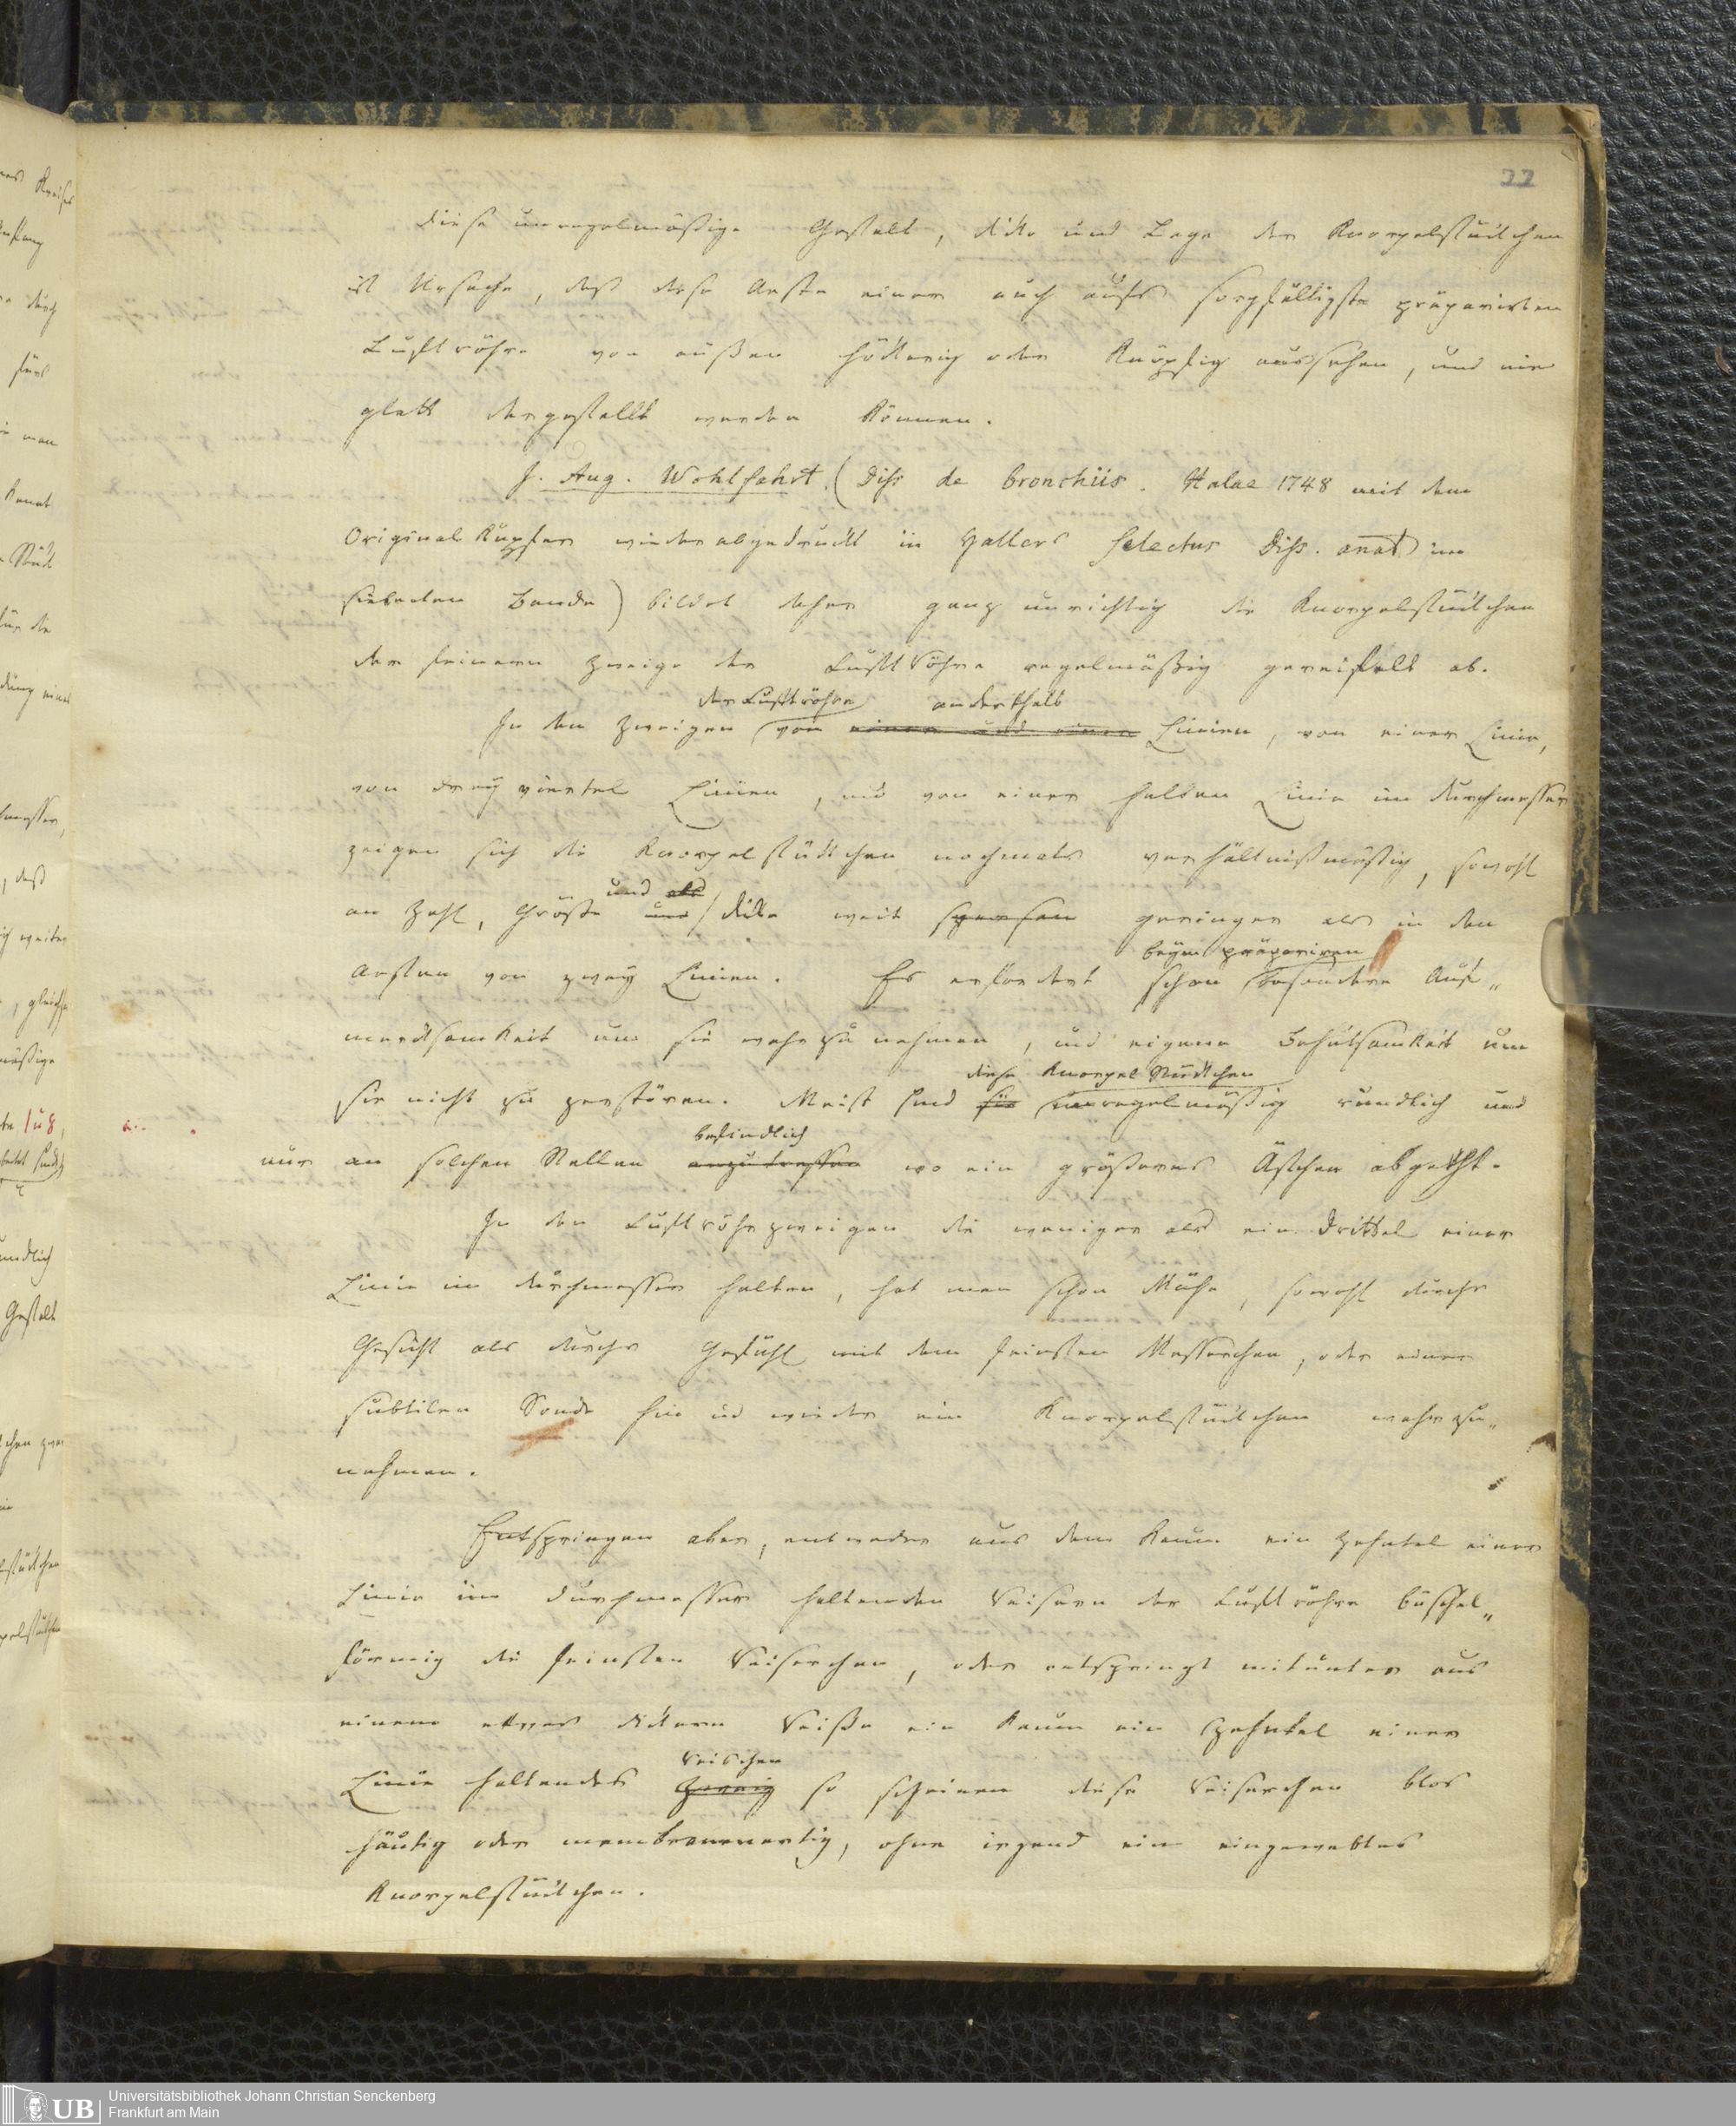 22
diese unregelmäßige Gestalt, dicke und Lage der Knorpelstückchen
ist Ursache, daß diese Aeste einer auch aufs sorgfältigste präparirten
Luftröhre von außen höckerig oder Knöpfig aussehen, und nie
glatt dargestellt werden können.
J. Aug. Wohlfahrt (Diss de bronchiis. Halae 1748 mit dem
Original Kupfer wieder abgedruckt in Hallers Selectus Diss. anat im
siebenten Bande) bildet daher ganz unrichtig die Knorpelstückchen
der feinern Zweige der Luftröhre regelmäßig gereifelt ab.
der Luftröhre anderthalb
In den Zweigen von einer und einer Linien, von einer Linie,
von drey viertel Linien, und von einer halben Linie im durchmesser
zeigen sich die Knorpelstückchen nochmals verhältnißmäßig, sowohl
und als
an Zahl, Größe und dicke weit geringer als in den
beym präpariren
Aesten von zwey Linien. Es erfordert schon besondere Auf„
merksamkeit um sie wahrzunehmen, und eigene Behutsamkeit um
diese Knorpel Stückchen
sie nicht zu zerstören. Meist sind sie unregelmäßig rundlich und
befindlich
nur an solchen Stellen anzutreffen wo ein größeres Ästchen abgeht.
In den Luftröhrzweigen die weniger als ein Drittel einer
Linie im durchmesser halten, hat man schon Mühe, sowohl durchs
Gesicht als durchs Gefühl mit dem feinsten Messerchen, oder einer
subtilen Sonde hin und wieder ein Knorpelstückchen wahrzu„
nehmen.
Entspringen aber, entweder aus dem kaum ein zehntel einer
Linie im Durchmesser haltenden Reisern der Luftröhre büschel„
förmig die feinsten Reiserchen, oder entspringt mitunter aus
einem etwas dickern Reiße ein kaum ein zehntel einer
Reischen
Linie haltendes Zweig so scheinen diese Reiserchen blos
häutig oder membranenartig, ohne irgend ein eingewebtes
Knorpelstückchen.
UB Universitätsbibliothek Johann Christian Senckenberg
Frankfurt am Main